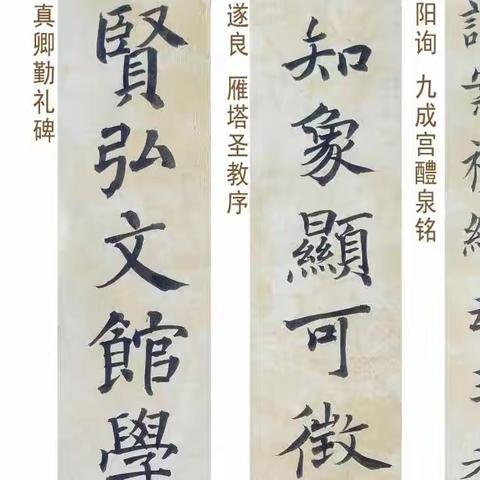 真卿勤礼碑
賢弘文館學
遂良 雁塔圣教序
知象顯可徵
阳询 九成宫醴泉铭